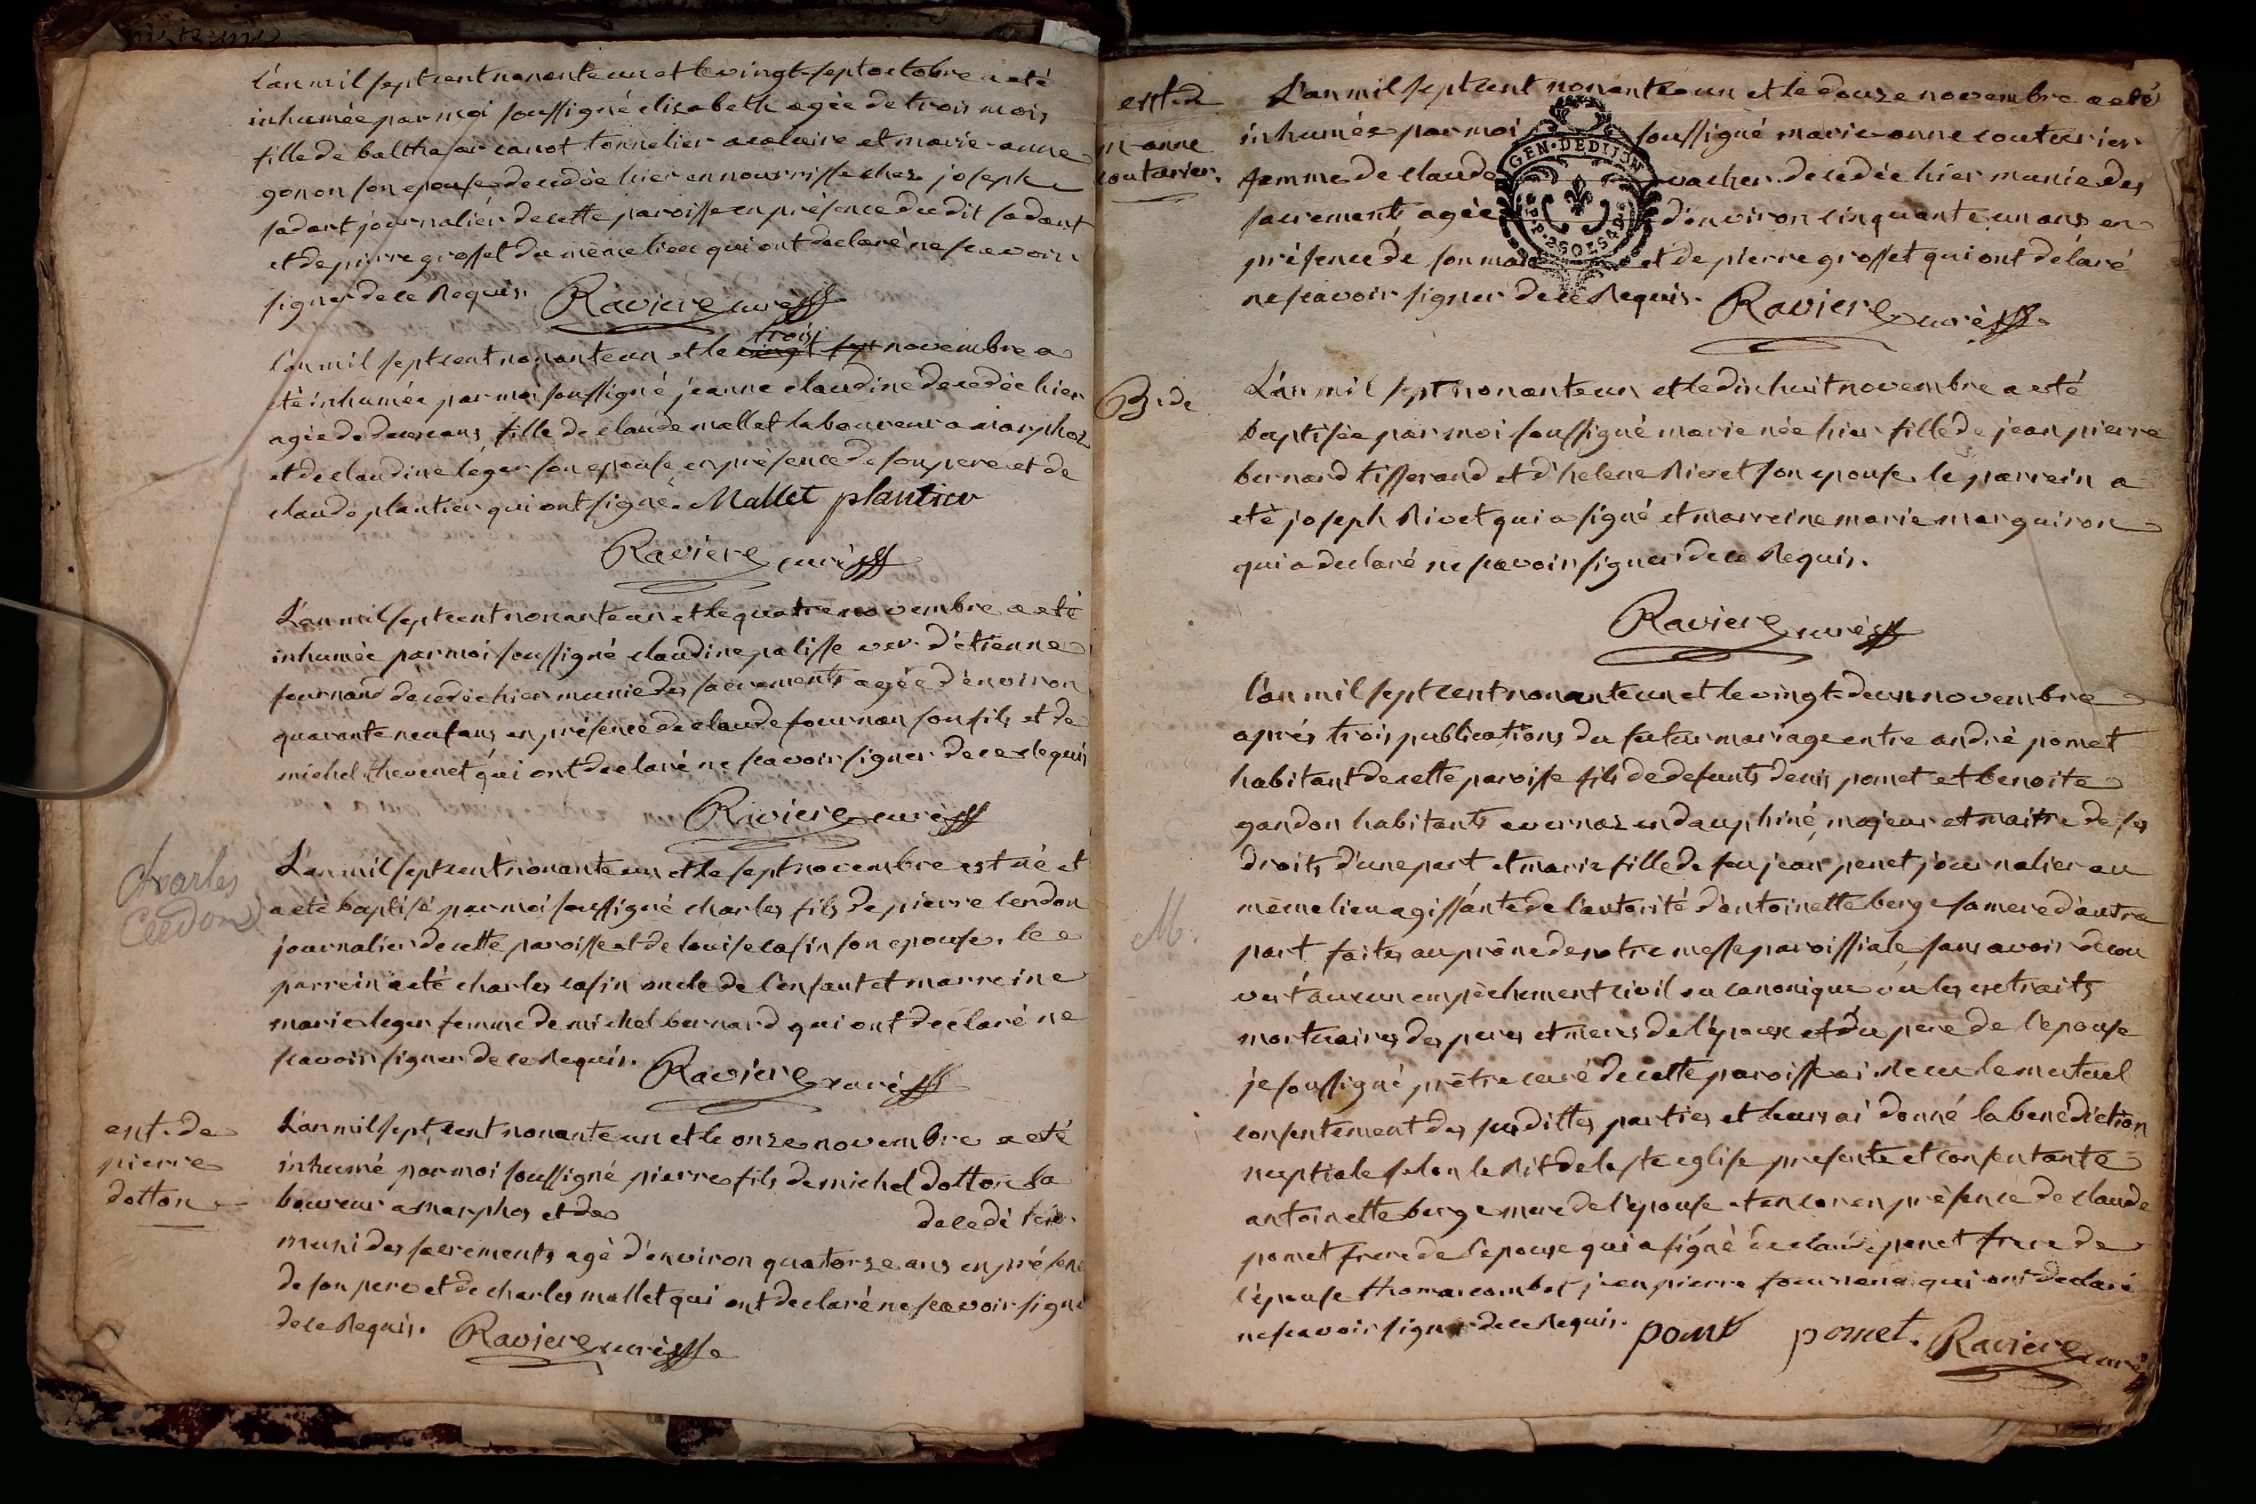 l'an mil sept cent nonante un et le vingt sept octobre a eté
inhumée par moi soussigné elisabeth agée de trois mois
fille de balthasar canot tonnelier a caluire et marie anne
gonon son epouse decedée hier en nourrisse chez joseph
sadant journalier de cette paroisse en présence du dit sadant
et de pierre grosset du même lieu qui ont declaré ne scavoir
signer de ce Requis. Raviere curé
trois
l'an mil sept cent nonante un et le vingt sept novembre a
été inhumée par moi soussigné jeanne claudine decedée hier
agée de deux ans fille de claude mallet laboureur a marphoz
et de claudine léger son epouse en présence de son pere et de
claude plantier qui ont signé. Mallet plantier
Raviere curé
L'an mil sept cent nonante un et le quatre novembre a eté
inhumée par moi soussigné claudine palisse veu. d'étienne
fournand decedée hier munie des sacrements agée d'environ
quarante neuf ans en présence de claude fournan son fils et de
michel thevenet qui ont declaré ne scavoir signer de ce Requis
Raviere curé
Charles
Cendon
L'an mil sept cent nonante un et le sept novembre est né et
a eté baptisé par moi soussigné charles fils de pierre cendon
journalier de cette paroisse et de louise cafin son epouse. le
parrein a eté charles cafin oncle de l'enfant et marreine
marie leger femme de michel bernard qui ont déclaré ne
scavoir signer de ce Requis. Raviere curé
ent. de
pierre
dotton
L'an mil sept cent nonante un et le onze novembre a eté
inhumé par moi soussigné pierre fils de michel dotton la
boureur a marphoz et de decedé hier
muni des sacrements agé d'environ quatorze ans en présen
de son pere et de charles mallet qui ont declaré ne scavoir signe
de ce Requis. Raviere curé
ent. de
m. anne
couturier.
L'an mil sept cent nonante un et le douze novembre a eté
inhumée par moi soussigné marie anne couturier
femme de claude vacher decedée hier munie des
sacrements agée d'environ cinquante un ans en
présence de son mari et de pierre grosset qui ont délaré
ne scavoir signer de ce Requis. Raviere curé
GEN. DE DIJON
B. de
L'an mil sept nonante un et le dix huit novembre a eté
baptisée par moi soussigné marie née hier fille de jean pierre
bernard tisserand et d'helene Rivet son epouse. le parrein a
eté joseph Rivet qui a signé et marreine marie marguiron
qui a declaré ne scavoir signer de ce Requis.
Raviere curé
M.
l'an mil sept cent nonante un et le vingt deux novembre
aprés trois publications du futur mariage entre andré pomet
habitant de cette paroisse fils de defunts denis pomet et benoite
gandon habitants a vernaz en dauphiné, majeur et maitre de ses
droits d'une part et marie fille de feu jean penet journalier au
même lieu agissante de l'autorité d'antoinette berge sa mere d'autre
part faites au prône de notre messe paroissiale sans avoir decou
vert aucun empêchement civil ou canonique vu les extraits
mortuaires des peres et meres de l'époux et du pere de l'epouse
je soussigné prêtre curé de cette paroisse ai Recu le mutuel
consentement des susdittes parties et leurs ai donné la benediction
nuptiale selon le Rit de la ste eglise presente et consentante
antoinette berge mere de l'epouse et encor en présence de claude
pomet frere de l'epoux qui a signé de claude penet frere de
l'épouse thomas combet jean pierre fournand qui ont declaré
ne scavoir signer de ce Requis. pomet pomet. Raviere curé